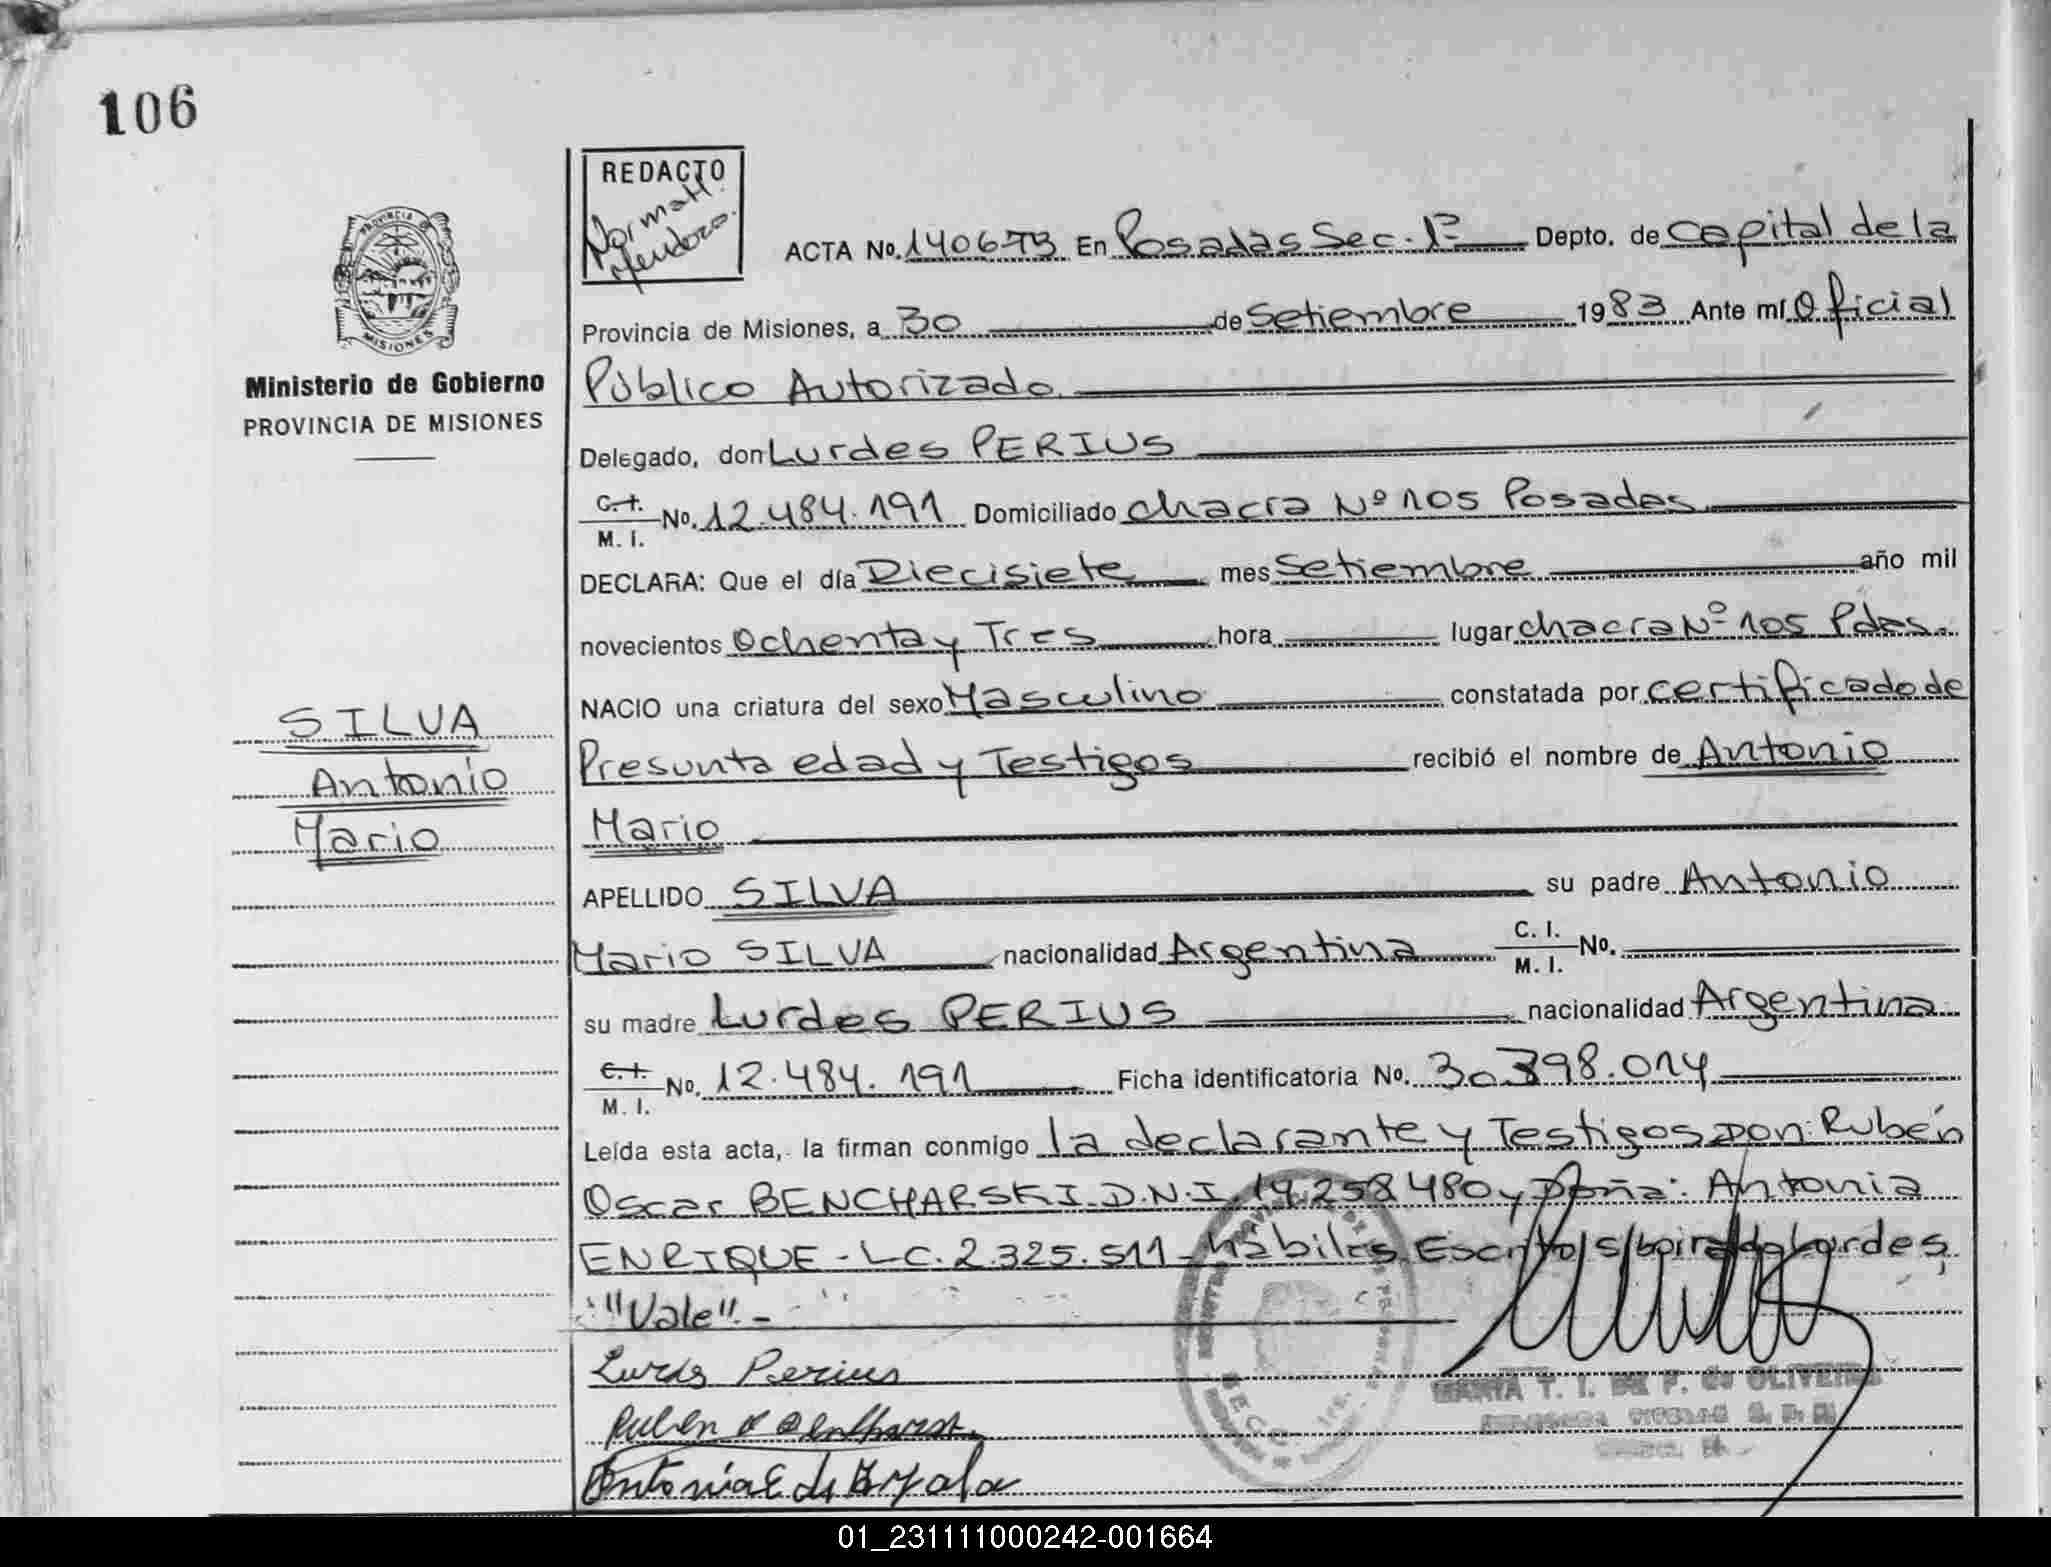 106
REDACTO
Norma H.
Mendoza.
PROVINCIA DE
MISIONES
Ministerio de Gobierno
PROVINCIA DE MISIONES
ACTA No. 140673 En Posadas Sec. 1ª Depto. de Capital de la
Provincia de Misiones, a 30 de Setiembre 1983 Ante mí Oficial
Público Autorizado.
Delegado, don Lurdes PERIUS
C. I.
M. I. No. 12.484.191 Domiciliado chacra Nº 105 Posadas
DECLARA: Que el día Diecisiete mes Setiembre año mil
novecientos Ochenta y Tres hora lugar chacra Nº 105 Pdas.
NACIO una criatura del sexo Masculino constatada por certificado de
Presunta edad y Testigos recibió el nombre de Antonio
Mario
SILVA
Antonio
Mario
APELLIDO SILVA su padre Antonio
Mario SILVA nacionalidad Argentina C. I.
M. I. No.
su madre Lurdes PERIUS nacionalidad Argentina
C. I.
M. I. No. 12.484.191 Ficha identificatoria No. 30.398.014
Leída esta acta, la firman conmigo la declarante y Testigos Don: Rubén
Oscar BENCHARSKI D.N.I. 14.258.480 y Doña: Antonia
ENRIQUE - LC. 2.325.511 - hábiles. Escrito s/ Lurdes,
"Vale". -
Lurdes Perius
Ruben O
Antonia E de Ayala
MARTA T. I. DE P. de OLIVEIRA
01_231111000242-001664